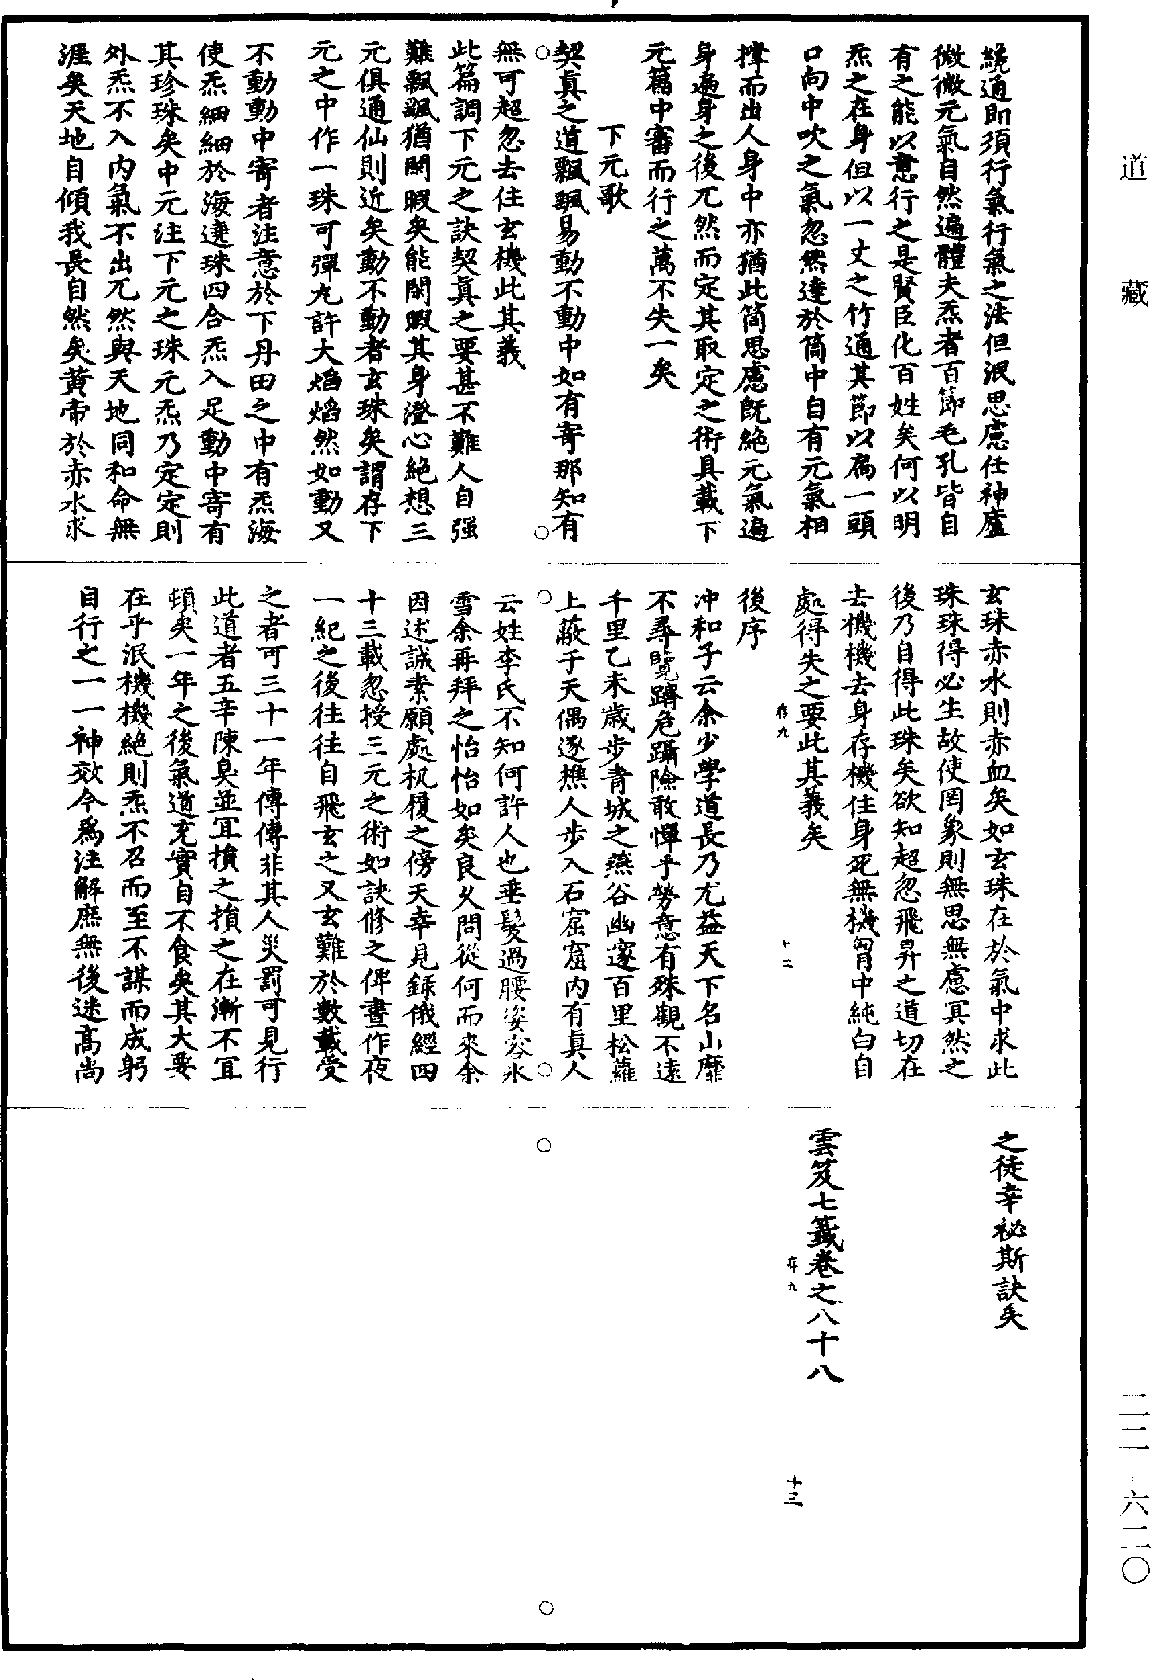 道藏
纔通即須行氣行氣之法但泯思慮任神廬
微微元氣自然遍體夫炁者百節毛孔皆自
有之能以意行之是賢臣化百姓矣何以明
炁之在身但以一丈之竹通其節以爲一頭
口向中吹之氣忽然達於筒中自有元氣相
撑而出人身中亦猶此筒思慮既絶元氣遍
身遍身之後兀然而定其取定之術具載下
元篇中審而行之萬不失一矣
下元歌
契真之道飄飄易動不動中如有寄那知有
無可超忽去住玄機此其義
此篇調下元之訣契真之要甚不難人自強
難飄飄猶閑暇矣能閑暇其身澄心絶想三
元俱通仙則近矣動不動者玄珠矣謂存下
元之中作一珠可彈丸許大焰焰然如動又
不動動中寄者注意於下丹田之中有炁海
使炁細細於海遶珠四合炁入足動中寄有
其珍珠矣中元注下元之珠元炁乃定定則
外炁不入内氣不出兀然與天地同和命無
涯矣天地自傾我長自然矣黄帝於赤水求
玄珠赤水則赤血矣如玄珠在於氣中求此
珠珠得必生故使罔象則無思無慮冥然之
後乃自得此珠矣欲知超忽飛昇之道切在
去機機去身存機住身死無機胷中純白自
處得失之要此其義矣
存九
十二
後序
冲和子云余少學道長乃尤益天下名山靡
不尋覽躋危躡險敢憚乎勞意有殊觀不遠
千里乙未歲步青城之燕谷幽邃百里松蘿
上蔽于天偶逐樵人步入石窟窟内有真人
云姓李氏不知何許人也垂髪過腰姿容氷
雪余再拜之怡怡如矣良久問從何而來余
因述誠素願處杖履之傍天幸見錄俄經四
十三載忽授三元之術如訣修之俾晝作夜
一紀之後往往自飛玄之又玄難於數載受
之者可三十一年傳傳非其人災罰可見行
此道者五辛陳臭並冝損之損之在漸不冝
頓矣一年之後氣道充實自不食矣其大要
在乎泯機機絶則炁不召而至不謀而成躬
自行之一一神效今爲注解庶無後迷高尚
之徒幸祕斯訣矣
雲笈七籤卷之八十八
存九
十三
二二 六二〇